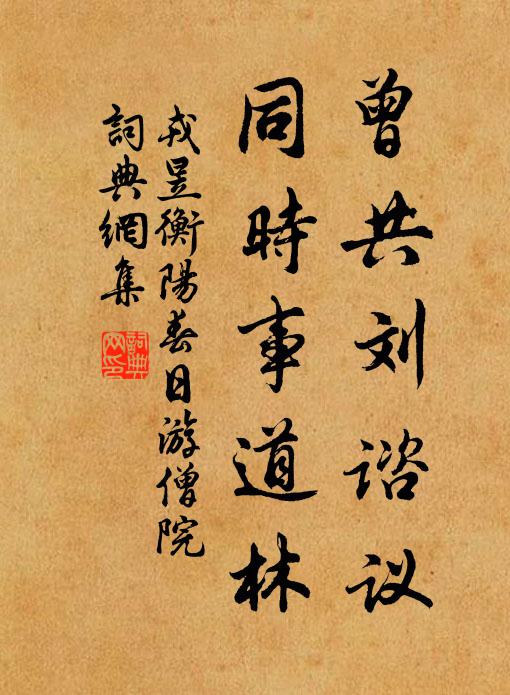 曾共刘諮议
同時事道林
戎昱衡陽春日游僧院
詞典網集
詞典
网印